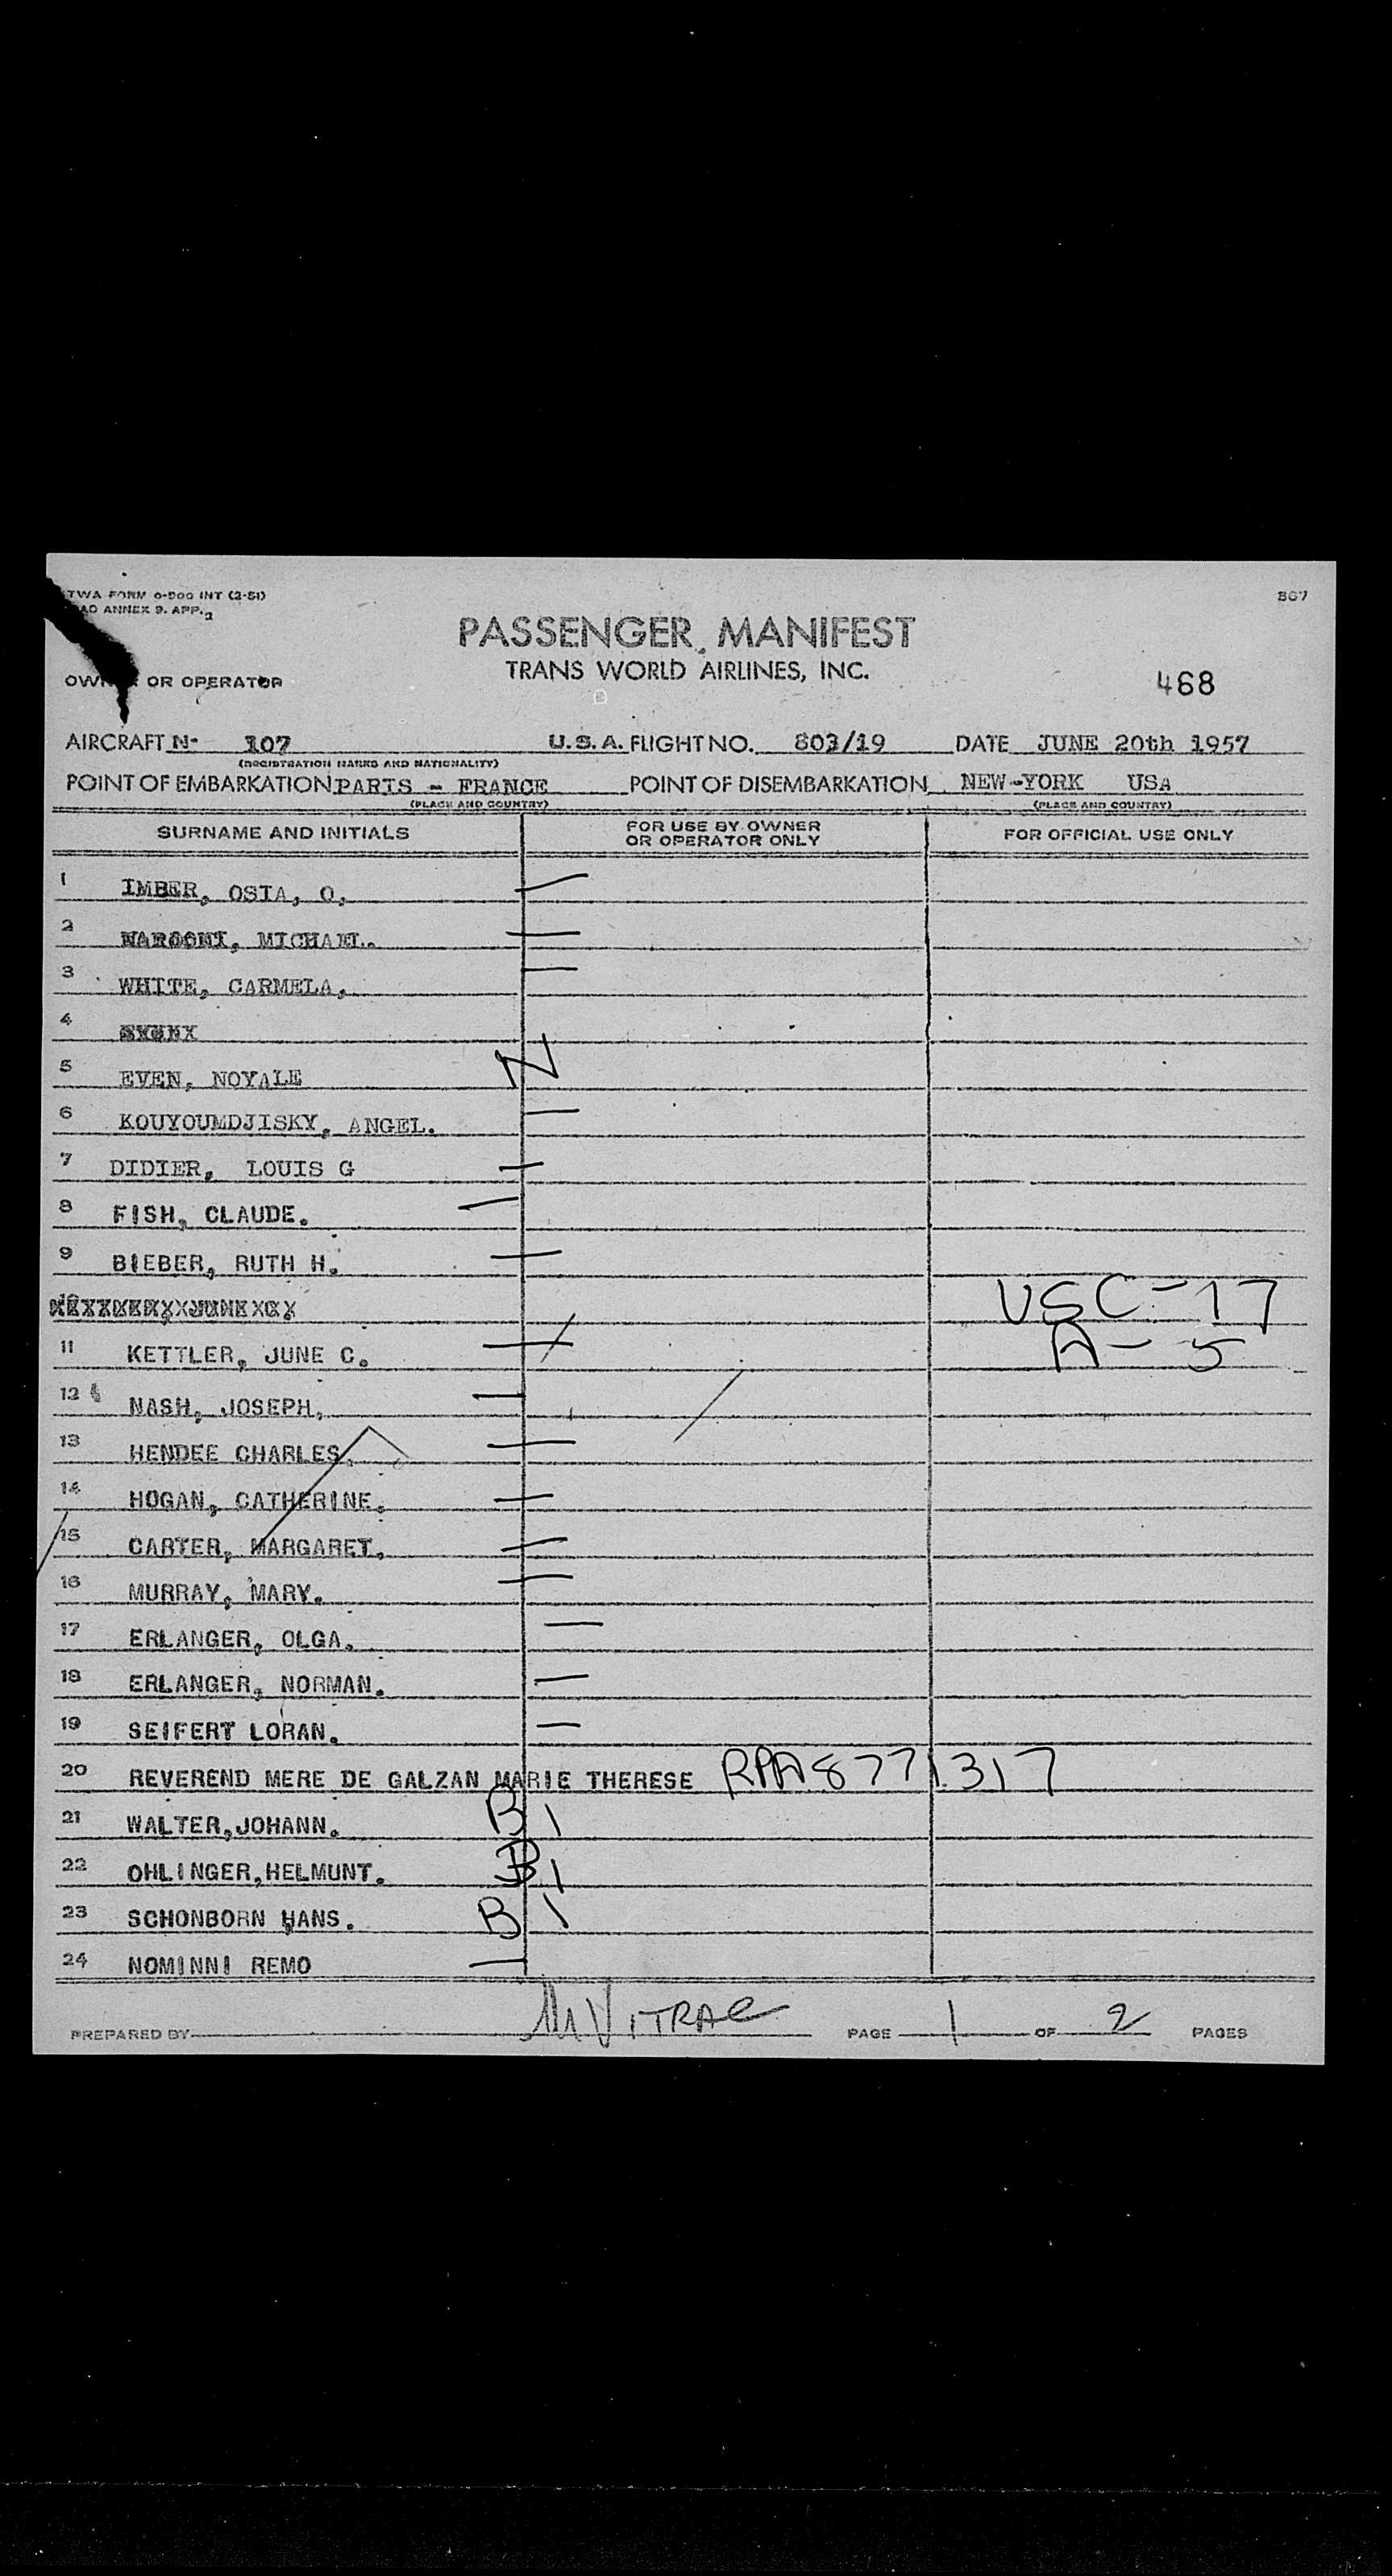 TWA FORM 0-500 INT (2-51)
867
ANNEX 9. APP. 2
PASSENGER MANIFEST
TRANS WORLD AIRLINES, INC.
468
OWNER OR OPERATOR
AIRCRAFT N- 107 U.S.A. FLIGHT NO. 803/19 DATE JUNE 20th 1957
(REGISTRATION MARKS AND NATIONALITY)
POINT OF EMBARKATION PARIS - FRANCE POINT OF DISEMBARKATION NEW-YORK USA
(PLACE AND COUNTRY) (PLACE AND COUNTRY)
SURNAME AND INITIALS FOR USE BY OWNER OR OPERATOR ONLY FOR OFFICIAL USE ONLY
1 IMBER, OSIA, O,
2 MICHAEL.
3 WHITE, CARMELA,
4
5 EVEN, NOYALE N
6 KOUYOUMDJISKY, ANGEL.
7 DIDIER, LOUIS G
8 FISH, CLAUDE.
9 BIEBER, RUTH H.
10 USC-17
11 KETTLER, JUNE C. A-5
12 NASH, JOSEPH,
13 HENDEE CHARLES.
14 HOGAN, CATHERINE.
15 CARTER, MARGARET.
16 MURRAY, MARY.
17 ERLANGER, OLGA.
18 ERLANGER, NORMAN.
19 SEIFERT LORAN.
20 REVEREND MERE DE GALZAN MARIE THERESE RPA8771317
21 WALTER,JOHANN. B1
22 OHLINGER,HELMUNT. B1
23 SCHONBORN HANS. B1
24 NOMINNI REMO
PREPARED BY M VITRAC PAGE 1 OF 2 PAGES